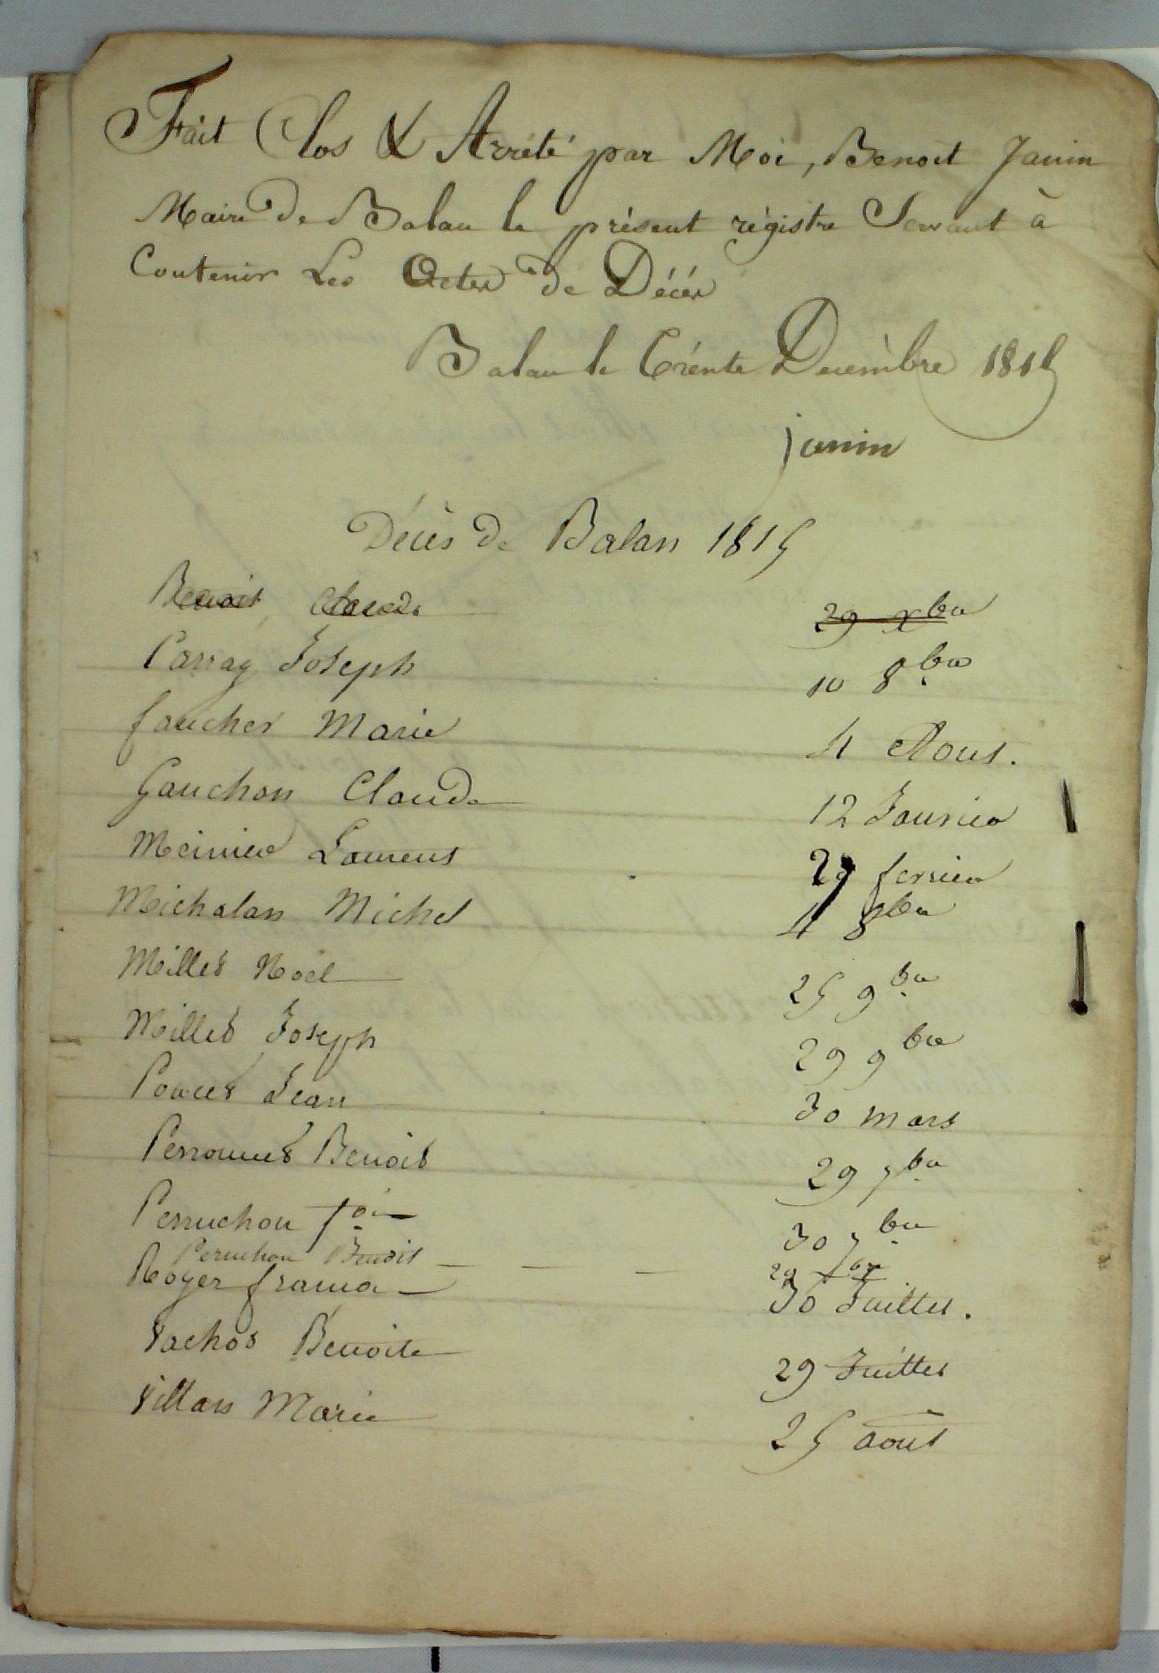 Fait Clos & Arrêté par Moi, Benoit Janin
Maire de Balan le présent régistre Servant à
Contenir Les Actes de Décés
Balan le Trente Decembre 1815
janin
Décès de Balan 1815
Benoit Claude 29 xbre
Carray Joseph 10 8bre
faucher Marie 4 Aout.
Gauchon Claude 12 Janvier
Meinier Laurent 29 fevrier
Michalan Michel 4 8bre
Millet Noël 25 9bre
Millet Joseph 29 9bre
Poncet Jean 30 mars
Perronnet Benoit 29 7bre
Perruchon fois 30 7bre
Peruchon Benoit 29 7bre
Roger france 30 Juillet.
Vachot Benoite 29 Juillet
Villars Marie 25 août